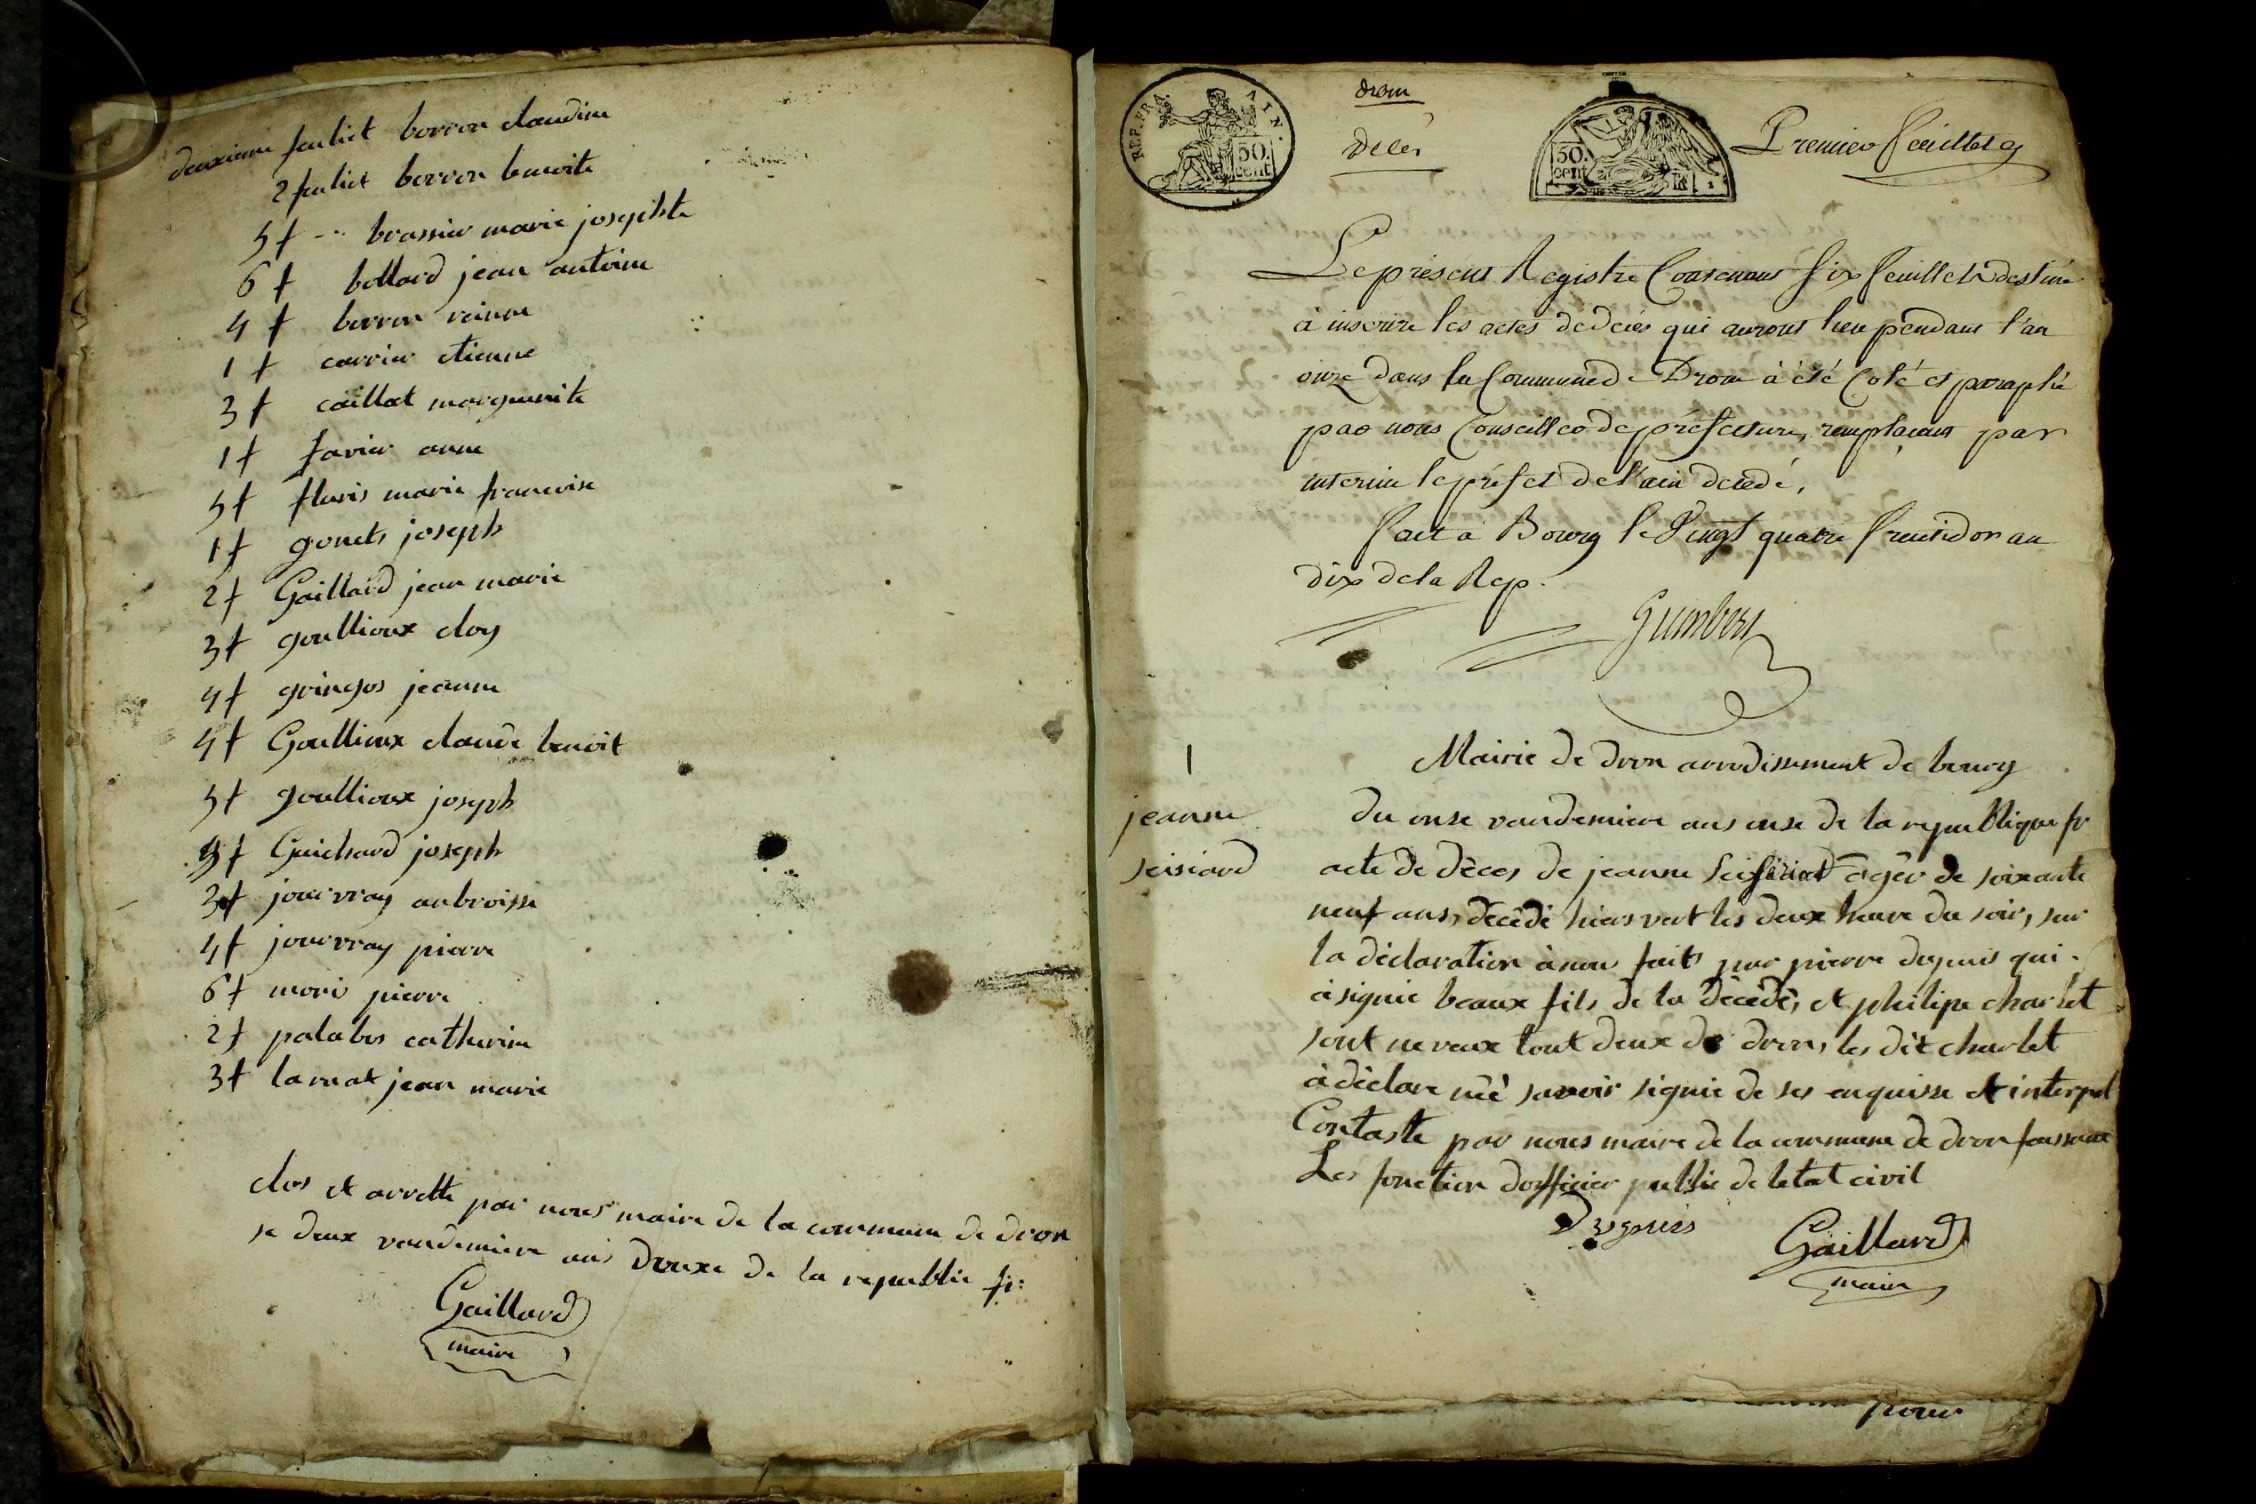 deuxieme feuliet borron claudine
2 feuliet borron benoite
5 f -- brassier marie josephte
6 f bollard jean antoine
4 f borron reinne
1 f carrier etienne
3 f caillat marguerite
1 f favier anne
5 f fluris marie francoise
1 f gonets joseph
2 f Gaillard jean marie
3 f goullioux eloy
4 f gringos jeanne
4 f Goullioux claude benoit
5 f goullioux joseph
f Guichard joseph
3 f jouvray anbroisse
4 f jouvray pierre
6 f moris pierre
2 f palabos catherine
3 f larnat jean marie
clos et arrette par nous maire de la commune de dron
se deux vandemiere ans douxe de la republic fr:
Gaillard
maire
REP. FRA. AIN.
50. cent
drom
Décès
50. cent
Premier feuillet
Le présent Registre Contenant Six feuillets destiné
à inscrire les actes de decès qui auront lieu pendant l'an
onze dans la Commune de Drom à été Coté et paraphé
par nous Conseiller de préfecture, remplaçant par
interim le préfet de l'ain decedé,
fait à Bourg le Vingt quatre fructidor an
dix de la Rep.
Gumbert
Mairie de dron arrodissement de bourg
1
jeanne
seisiard
du onse vandemiere ans onse de la republique fr
acte de dèces de jeanne âgér de soixante
neuf ans, dècedé hiers vert les deux heure du soir, sur
la déclaration à nou faits par pierre dupuis qui
à signie beaux fils de la dècedè, et philipe charlet
sont neveux tout deux de dron, les dit charlet
à dèclare nêe savoir signie de ses enquisse et interpel
Contaste par nous maire de la commune de dron faissant
Les fonction dofficier public de letat civil
Dupuis
Gaillard
maire